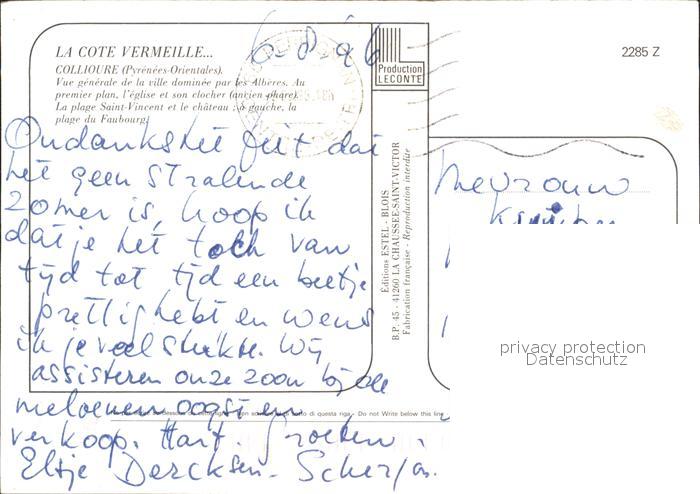 LA COTE VERMEILLE...
COLLIOURE (Pyrénées-Orientales).
Vue générale de la ville dominée par les Albères. Au
premier plan, l'église et son clocher (ancien phare).
La plage Saint-Vincent et le château ; à gauche, la
plage du Faubourg.
6-8 96
Ondanks het feit dat
het geen stralende
zomer is, hoop ik
dat je het toch van
tijd tot tijd een beetje
prettig hebt en wens
ik je veel sterkte. Wij
assisteren onze zoon bij de
meloenen oogst en
verkoop. Hart. Groeten,
Eltje Dercksen-
Production
LECONTE
Éditions ESTEL - BLOIS
B.P. 45 - 41260 LA CHAUSSÉE-SAINT-VICTOR
Fabrication française - Reproduction interdite
2285 Z
Mevrouw
di questa riga - Do not Write below this line
privacy protection
Datenschutz